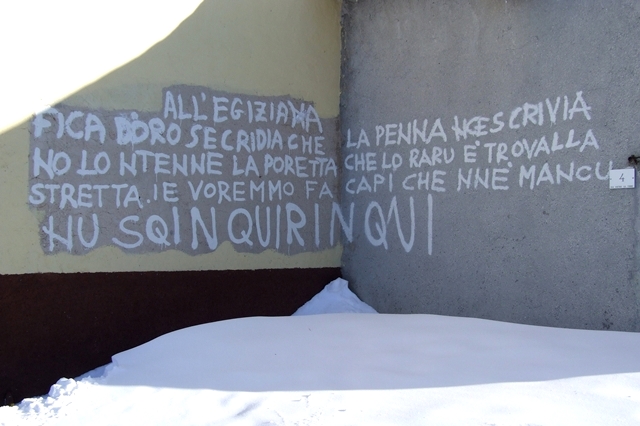 ALL'EGIZIANA
FICA DORO SECRIDIA CHE
NO LO NTENNE LA PORETTA
STRETTA. IE VOREMMO FA
NU SQINQUIRINQUI
LA PENNA NCESCRIVIA
CHE LO RARU E' TROVALLA
CAPI CHE NNE MANCU
4